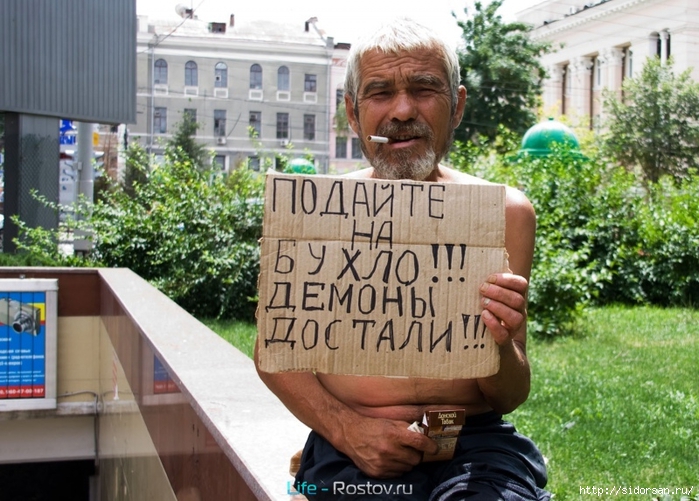 ПОДАЙТЕ
НА
БУХЛО!!!
ДЕМОНЫ
ДОСТАЛИ!!!
Донской
Табак
Life - Rostov.ru
http://sidoraap.ru/